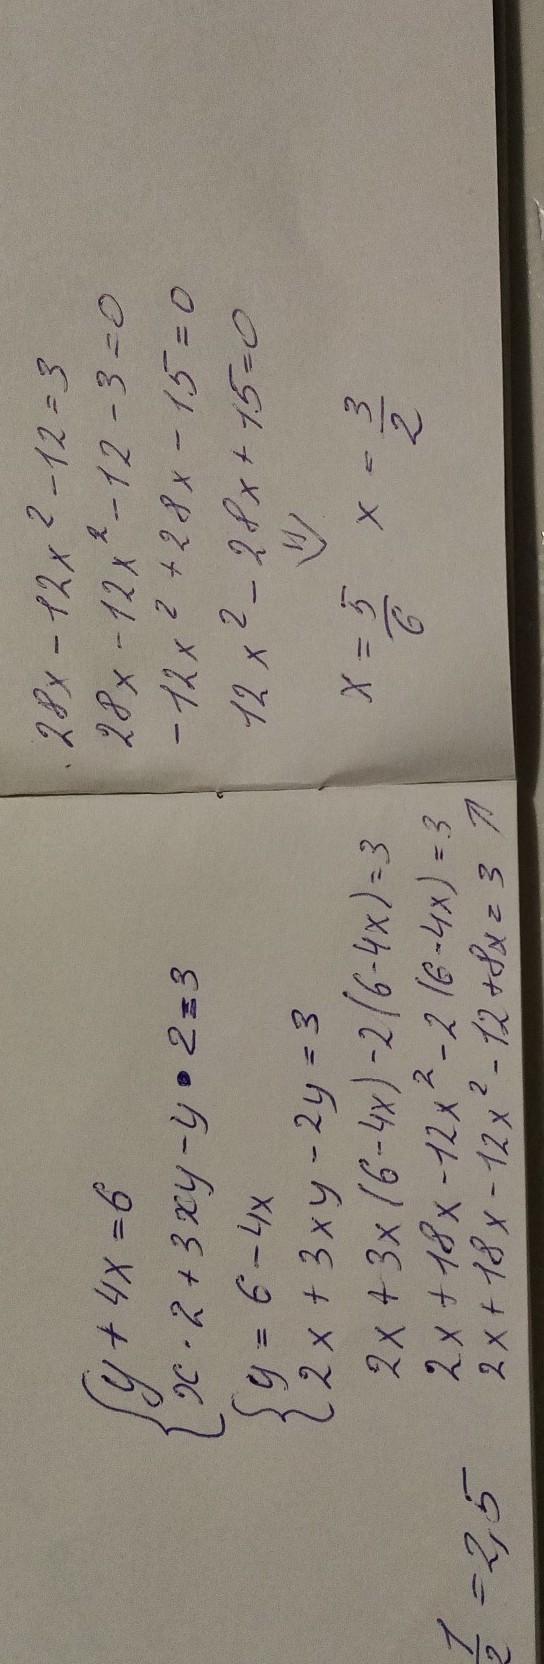 y + 4x = 6
x · 2 + 3xy - y · 2 = 3
y = 6 - 4x
2x + 3xy - 2y = 3
2x + 3x(6-4x) - 2(6-4x) = 3
2x + 18x - 12x² - 2(6-4x) = 3
2x + 18x - 12x² - 12 + 8x = 3 ↗
28x - 12x² - 12 = 3
28x - 12x² - 12 - 3 = 0
-12x² + 28x - 15 = 0
12x² - 28x + 15 = 0
x = 5/6 x = 3/2
1/2 = 2,5